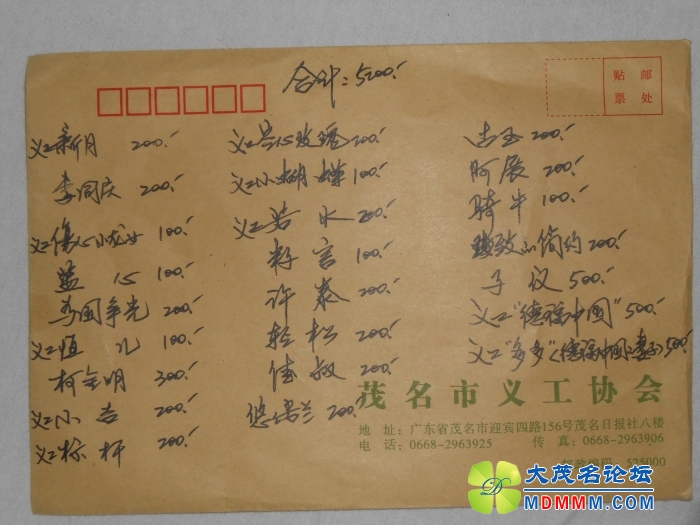 合计：5200.
贴 邮
票 处
义工新月 200.
李同庆 200.
义工伤心小龙女 100.
蓝心 100.
为国争光 200.
义工恒儿 100.
柯金明 300.
义工小吉 200.
义工标杆 200.
义工兰心玫瑰 200.
义工小蝴蝶 100.
义工若水 200.
籽言 200.
许泰 200.
轻松 200.
佳叔 200.
悠若兰 200.
古玉 200.
阿展 200.
骑牛 100.
臻致の简约 200.
子议 500.
义工“德福中国” 500.
义工“多多”（德福中国妻子）500.
茂名市义工协会
地 址：广东省茂名市迎宾四路156号茂名日报社八楼
电 话：0668-2963925 传 真：0668-2963906
邮政编码 525000
大茂名论坛
MDMMM.COM